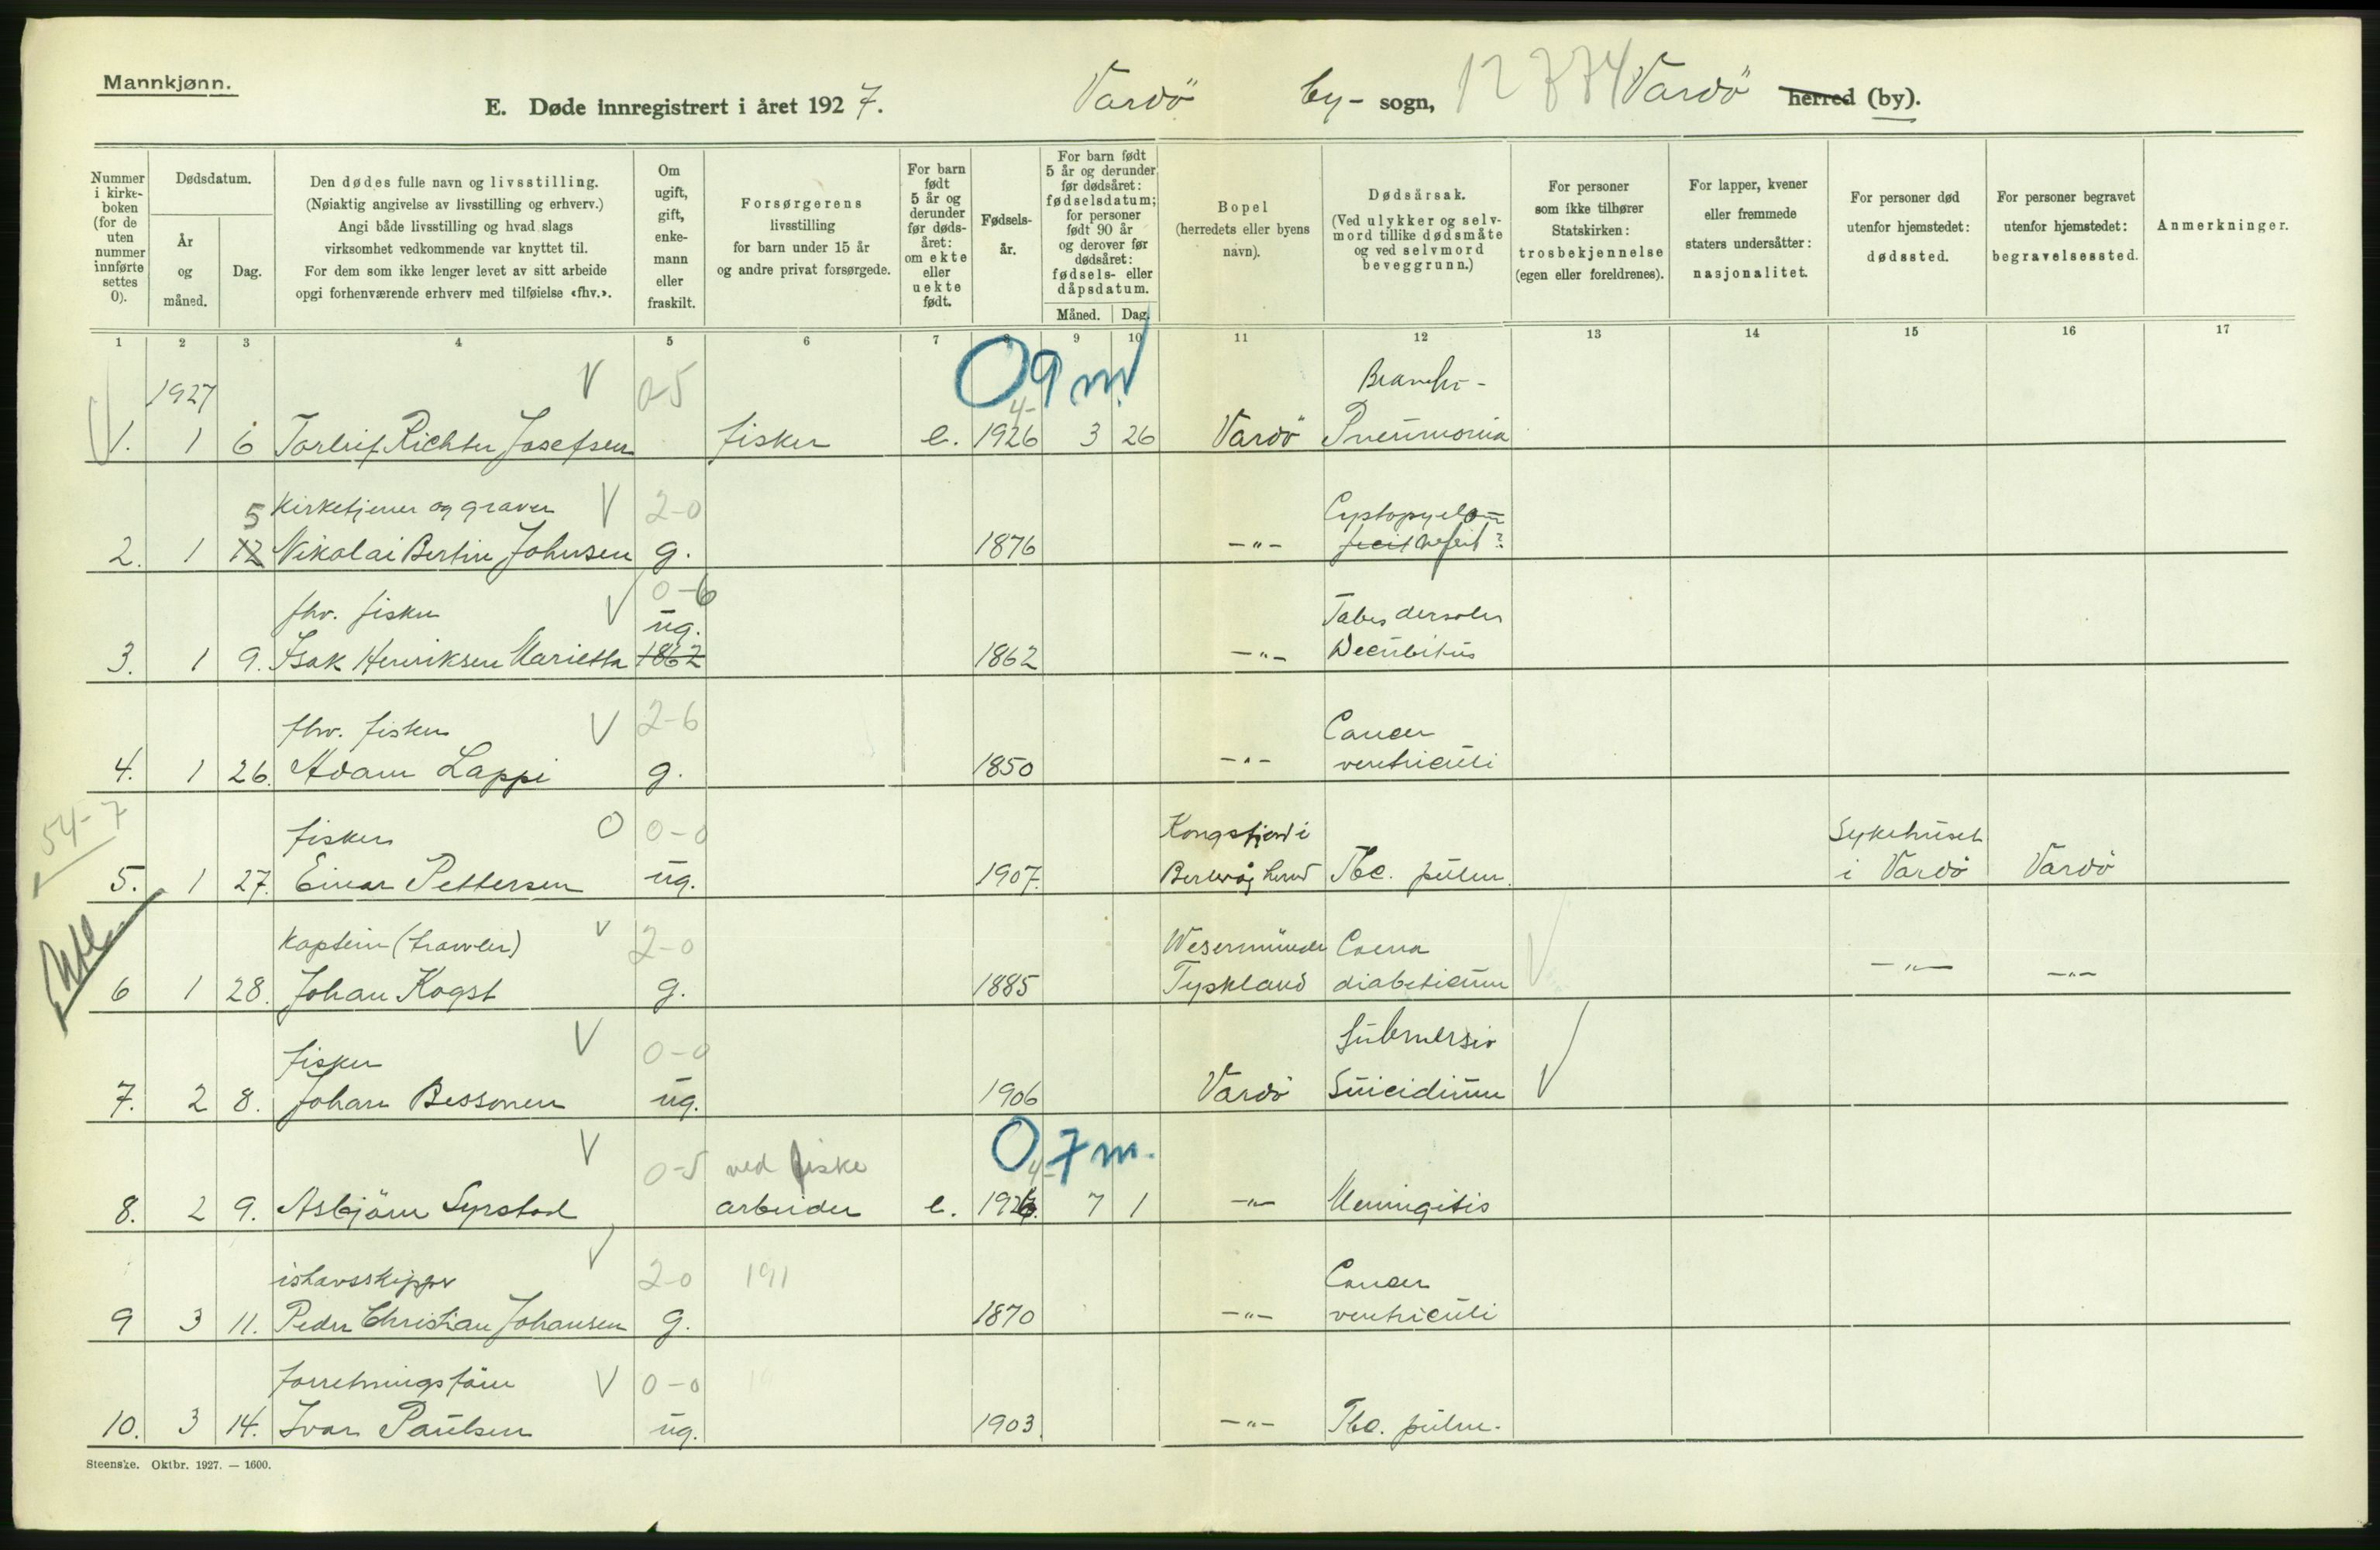 Mannkjønn.
E. Døde innregistrert i året 1927. Vardö by- sogn, 12 774 Vardö herred (by).
Nummer i kirke-boken (for de uten nummer innførte settes 0).
Dødsdatum.
År og måned.
Dag.
Den dødes fulle navn og livsstilling.
(Nøiaktig angivelse av livsstilling og erhverv.)
Angi både livsstilling og hvad slags
virksomhet vedkommende var knyttet til.
For dem som ikke lenger levet av sitt arbeide
opgi forhenværende erhverv med tilføielse «fhv.».
Om ugift, gift, enke-mann eller fraskilt.
Forsørgerens
livsstilling
for barn under 15 år
og andre privat forsørgede.
For barn født 5 år og derunder før døds-året: om ekte eller uekte født.
Fødsels-år.
For barn født 5 år og derunder før dødsåret: fødselsdatum; for personer født 90 år og derover før dødsåret: fødsels- eller dåpsdatum.
Måned. Dag.
Bopel
(herredets eller byens
navn).
Dødsårsak.
(Ved ulykker og selv-
mord tillike dødsmåte
og ved selvmord
beveggrunn.)
For personer
som ikke tilhører
Statskirken:
trosbekjennelse
(egen eller foreldrenes).
For lapper, kvener
eller fremmede
staters undersåtter:
nasjonalitet.
For personer død
utenfor hjemstedet:
dødssted.
For personer begravet
utenfor hjemstedet:
begravelsessted.
Anmerkninger.
1 2 3 4 5 6 7 8 9 10 11 12 13 14 15 16 17
1927 V 0-5 09 m. Broncho-
1. 1 6 Torleif Richter Josefsen fisker e. 4- 1926 3 26 Vardö Pneumonia
5 Kirketjener og graver V 2-0 Cystopyelom
2. 1 12 Nikolai Bertin Johnsen g. 1876 -"-
fhv. fisker V 0-6 ug. Tabes dorsales
3. 1 9. Isak Henriksen Marietta 1862 1862 -"- Decubitus
fhv. fisker V 2-6 Cancer
4. 1 26. Adam Lappi g. 1850 -"- ventriculi
54-7
fisker O 0-0 Kongsfjord i Sykehuset
5. 1 27. Einar Pettersen ug. 1907. Berlevåg herred Tbc. pulm. i Vardö Vardö
Kaptein (trawler) V 2-0 Wesermünde Coma
6 1 28. Johan Kogst g. 1885 Tyskland diabeticum -"- -"-
fisker V 0-0 Submersio
7. 2 8. Johan Bessonen ug. 1906 Vardö Suicidium V
V 0-5 ved fiske 0 7 m.
8. 2 9. Asbjörn Syrstad arbeider e. 4- 1926. 7 1 -"- Meningitis
ishavsskipper V 2-0 191 Cancer
9 3 11. Peder Christian Johansen g. 1870 -"- ventriculi
forretningsförer V 0-0
10. 3 14. Ivar Paulsen ug. 1903. -"- Tbc. pulm.
Steenske. Oktbr. 1927. — 1600.